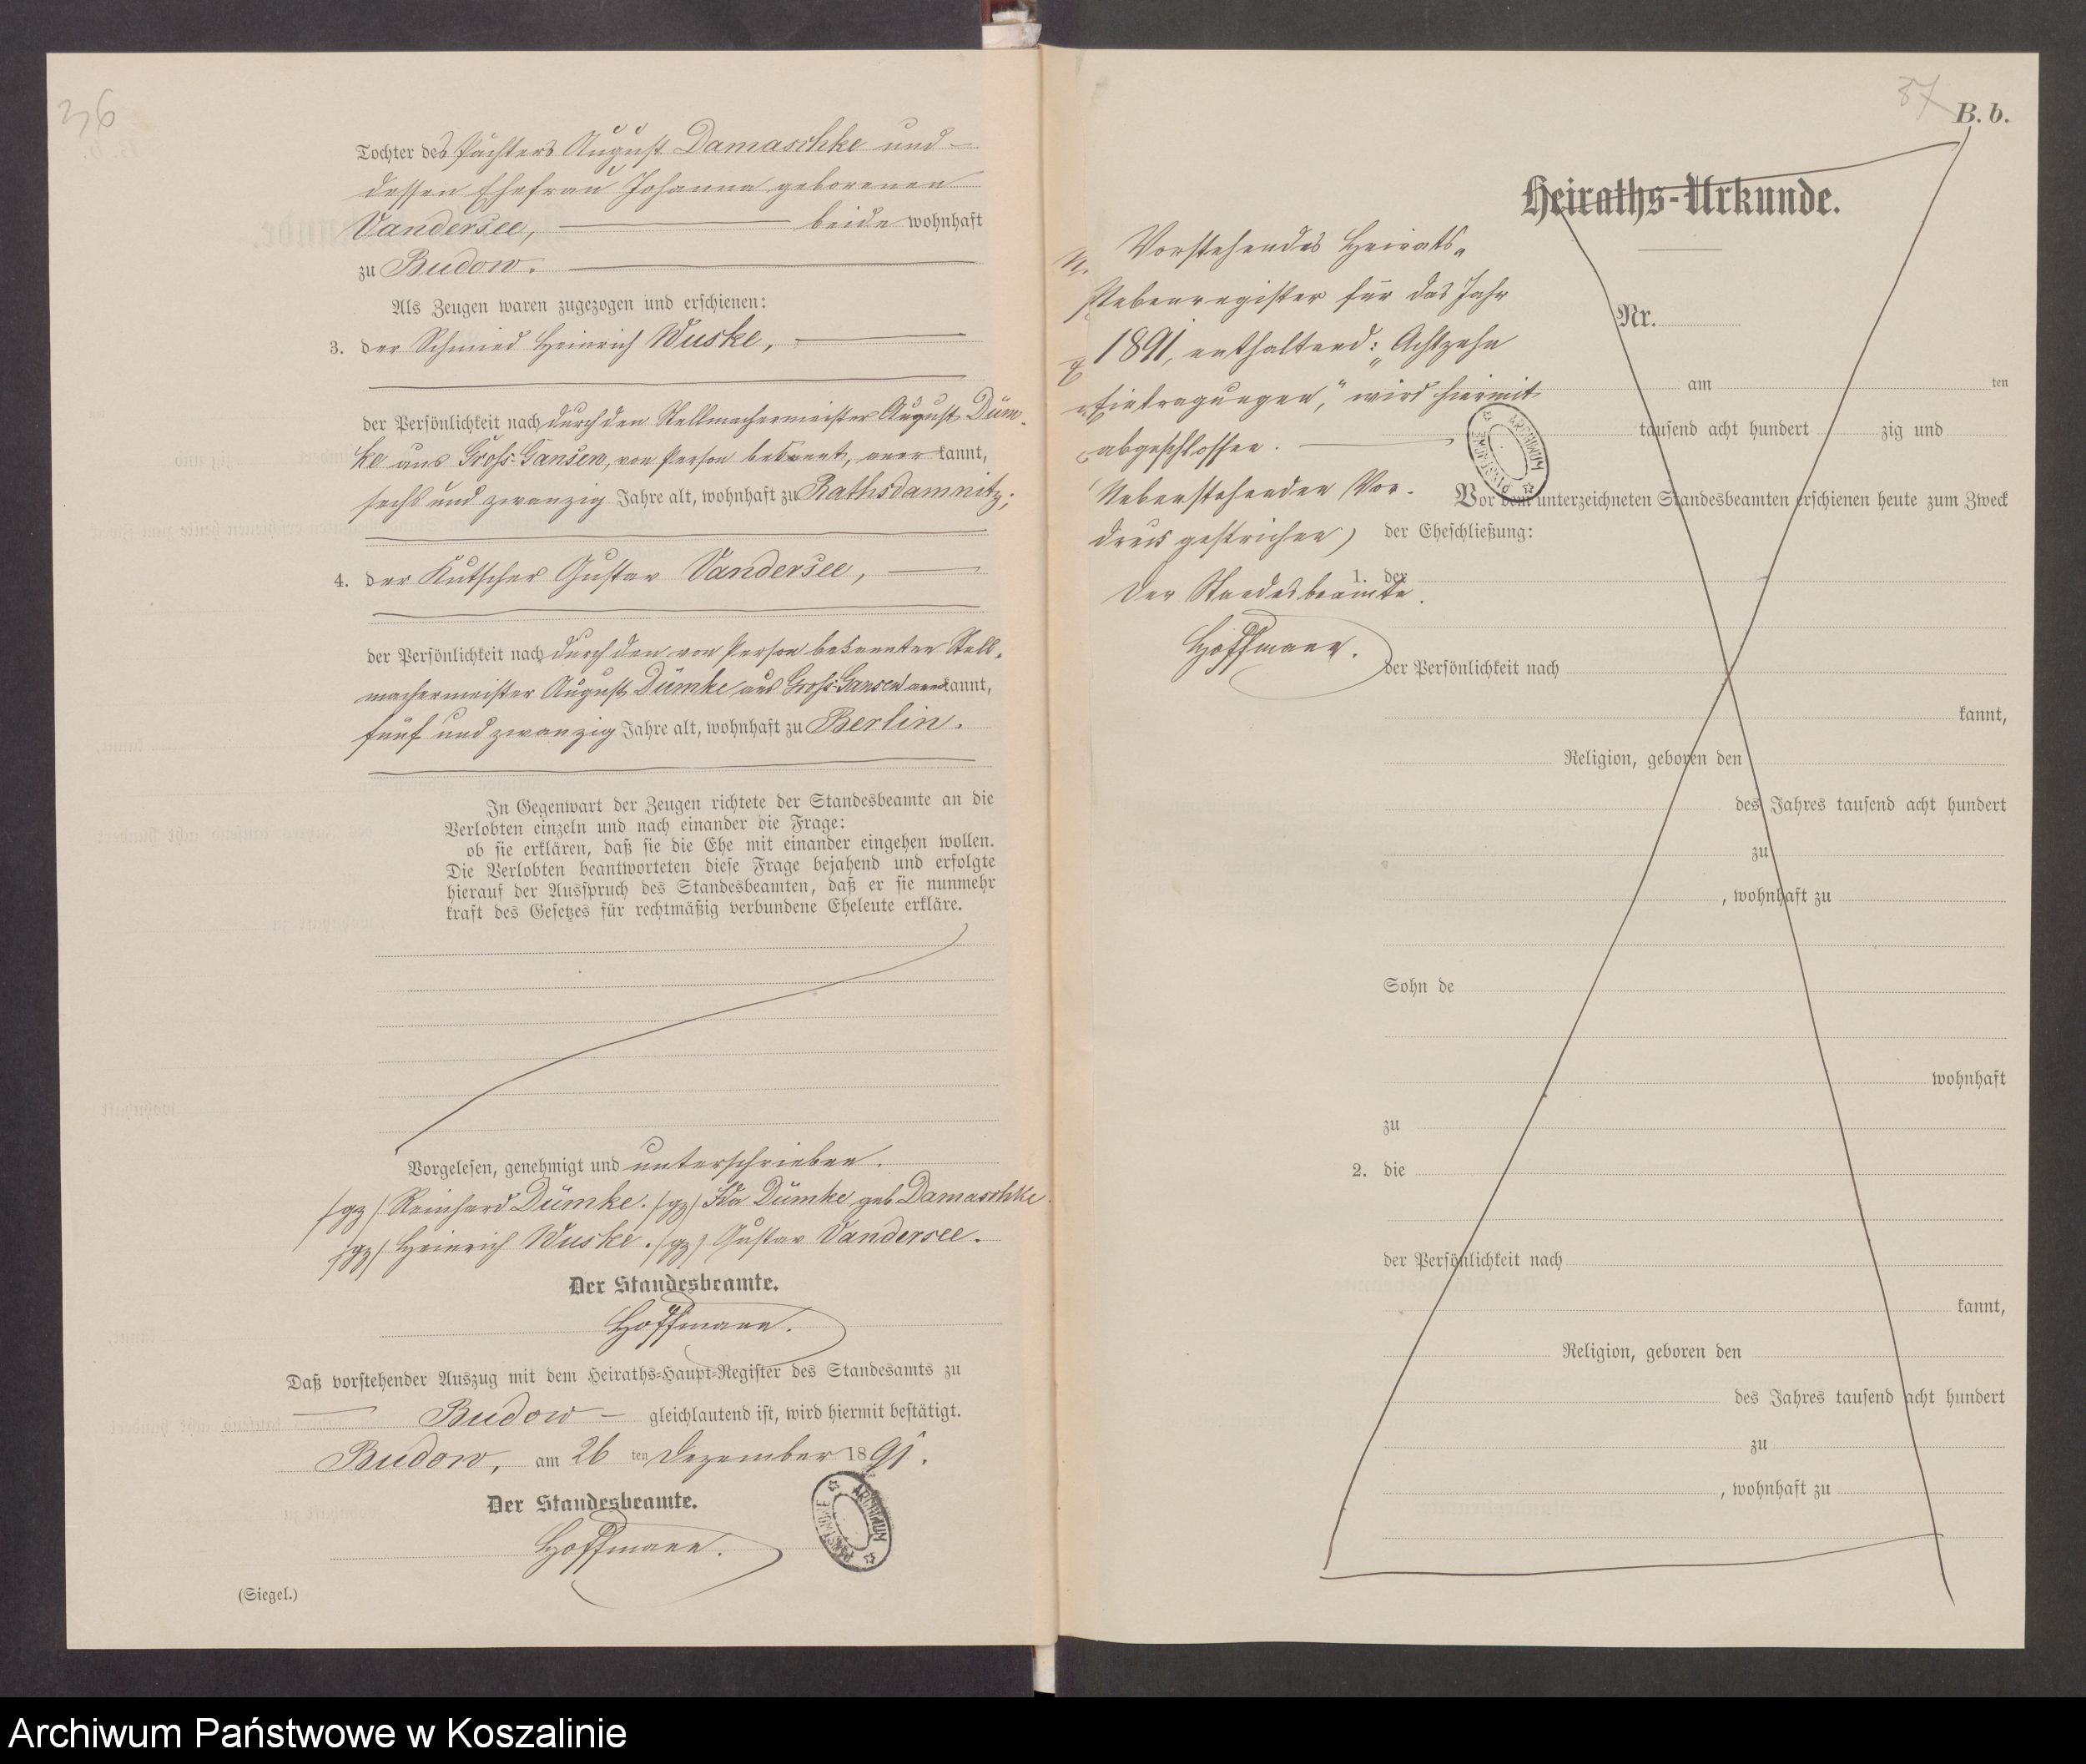 36
Tochter des Pächters August Damaschke und
dessen Ehefrau Johanna geborenen
Vandersee, beide wohnhaft
zu Budow.
Als Zeugen waren zugezogen und erschienen:
3. der Schmied Heinrich Wuske,
der Persönlichkeit nach durch den Stellmachermeister August Düm-
ke aus Groß-Gansen, von Person bekannt, anerkannt,
sechs und zwanzig Jahre alt, wohnhaft zu Rathsdamnitz;
4. der Kutscher Gustav Vandersee,
der Persönlichkeit nach durch den von Person bekannten Stell-
machermeister August Dümke aus Groß-Gansen anerkannt,
fünf und zwanzig Jahre alt, wohnhaft zu Berlin.
In Gegenwart der Zeugen richtete der Standesbeamte an die
Verlobten einzeln und nach einander die Frage:
ob sie erklären, daß sie die Ehe mit einander eingehen wollen.
Die Verlobten beantworteten diese Frage bejahend und erfolgte
hierauf der Ausspruch des Standesbeamten, daß er sie nunmehr
kraft des Gesetzes für rechtmäßig verbundene Eheleute erkläre.
Vorgelesen, genehmigt und unterschrieben.
/gz/ Reinhard Dümke. /gz/ Ida Dümke geb. Damaschke
/gz/ Heinrich Wuske. /gz/ Gustav Vandersee.
Der Standesbeamte.
Hoffmann.
Daß vorstehender Auszug mit dem Heiraths-Haupt-Register des Standesamts zu
Budow gleichlautend ist, wird hiermit bestätigt.
Budow, am 26 ten Dezember 1891.
Der Standesbeamte.
Hoffmann.
(Siegel.)
ARCHIWUM PAŃSTWOWE
37
B. b.
Heiraths-Urkunde.
Vorstehendes Heirats-
Nebenregister für das Jahr
1891, enthaltend: „Achtzehn
Eintragungen," wird hiermit
abgeschlossen.
Nebenstehenden Vor-
druck gestrichen)
Der Standesbeamte.
Hoffmann.
Nr.
am ten
tausend acht hundert zig und
ARCHIWUM PAŃSTWOWE
Vor dem unterzeichneten Standesbeamten erschienen heute zum Zweck
der Eheschließung:
1. der
der Persönlichkeit nach
kannt,
Religion, geboren den
des Jahres tausend acht hundert
zu
, wohnhaft zu
Sohn de
wohnhaft
zu
2. die
der Persönlichkeit nach
kannt,
Religion, geboren den
des Jahres tausend acht hundert
zu
, wohnhaft zu
Archiwum Państwowe w Koszalinie